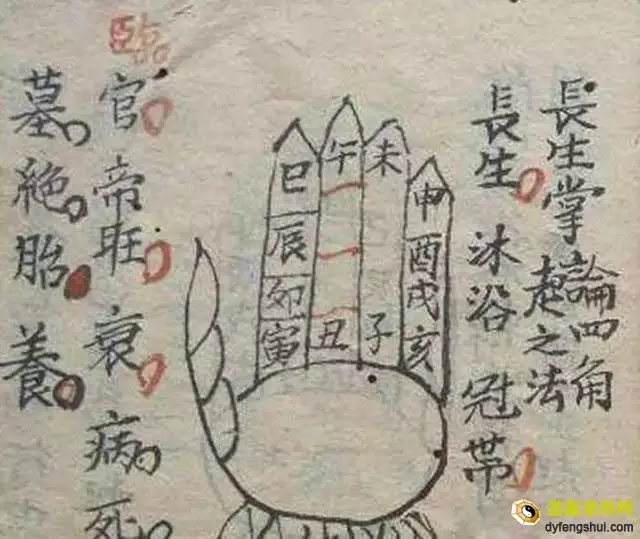 長生掌論四角
起之法
長生 沐浴 冠帶
臨官 帝旺 衰 病 死
墓 絶 胎 養
巳 午 未 申
辰 酉
卯 戌
寅 丑 子 亥
dyfengshui.com